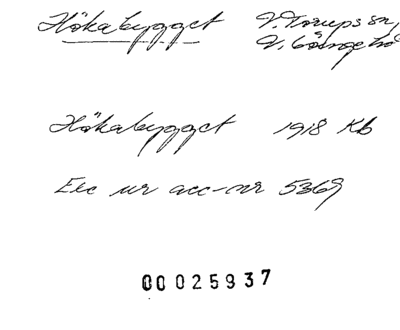 Hökabygget V. Torups sn,
V. Göinge hd
Hökabygget 1918 Kb
Exc ur acc-nr 5369
00025937